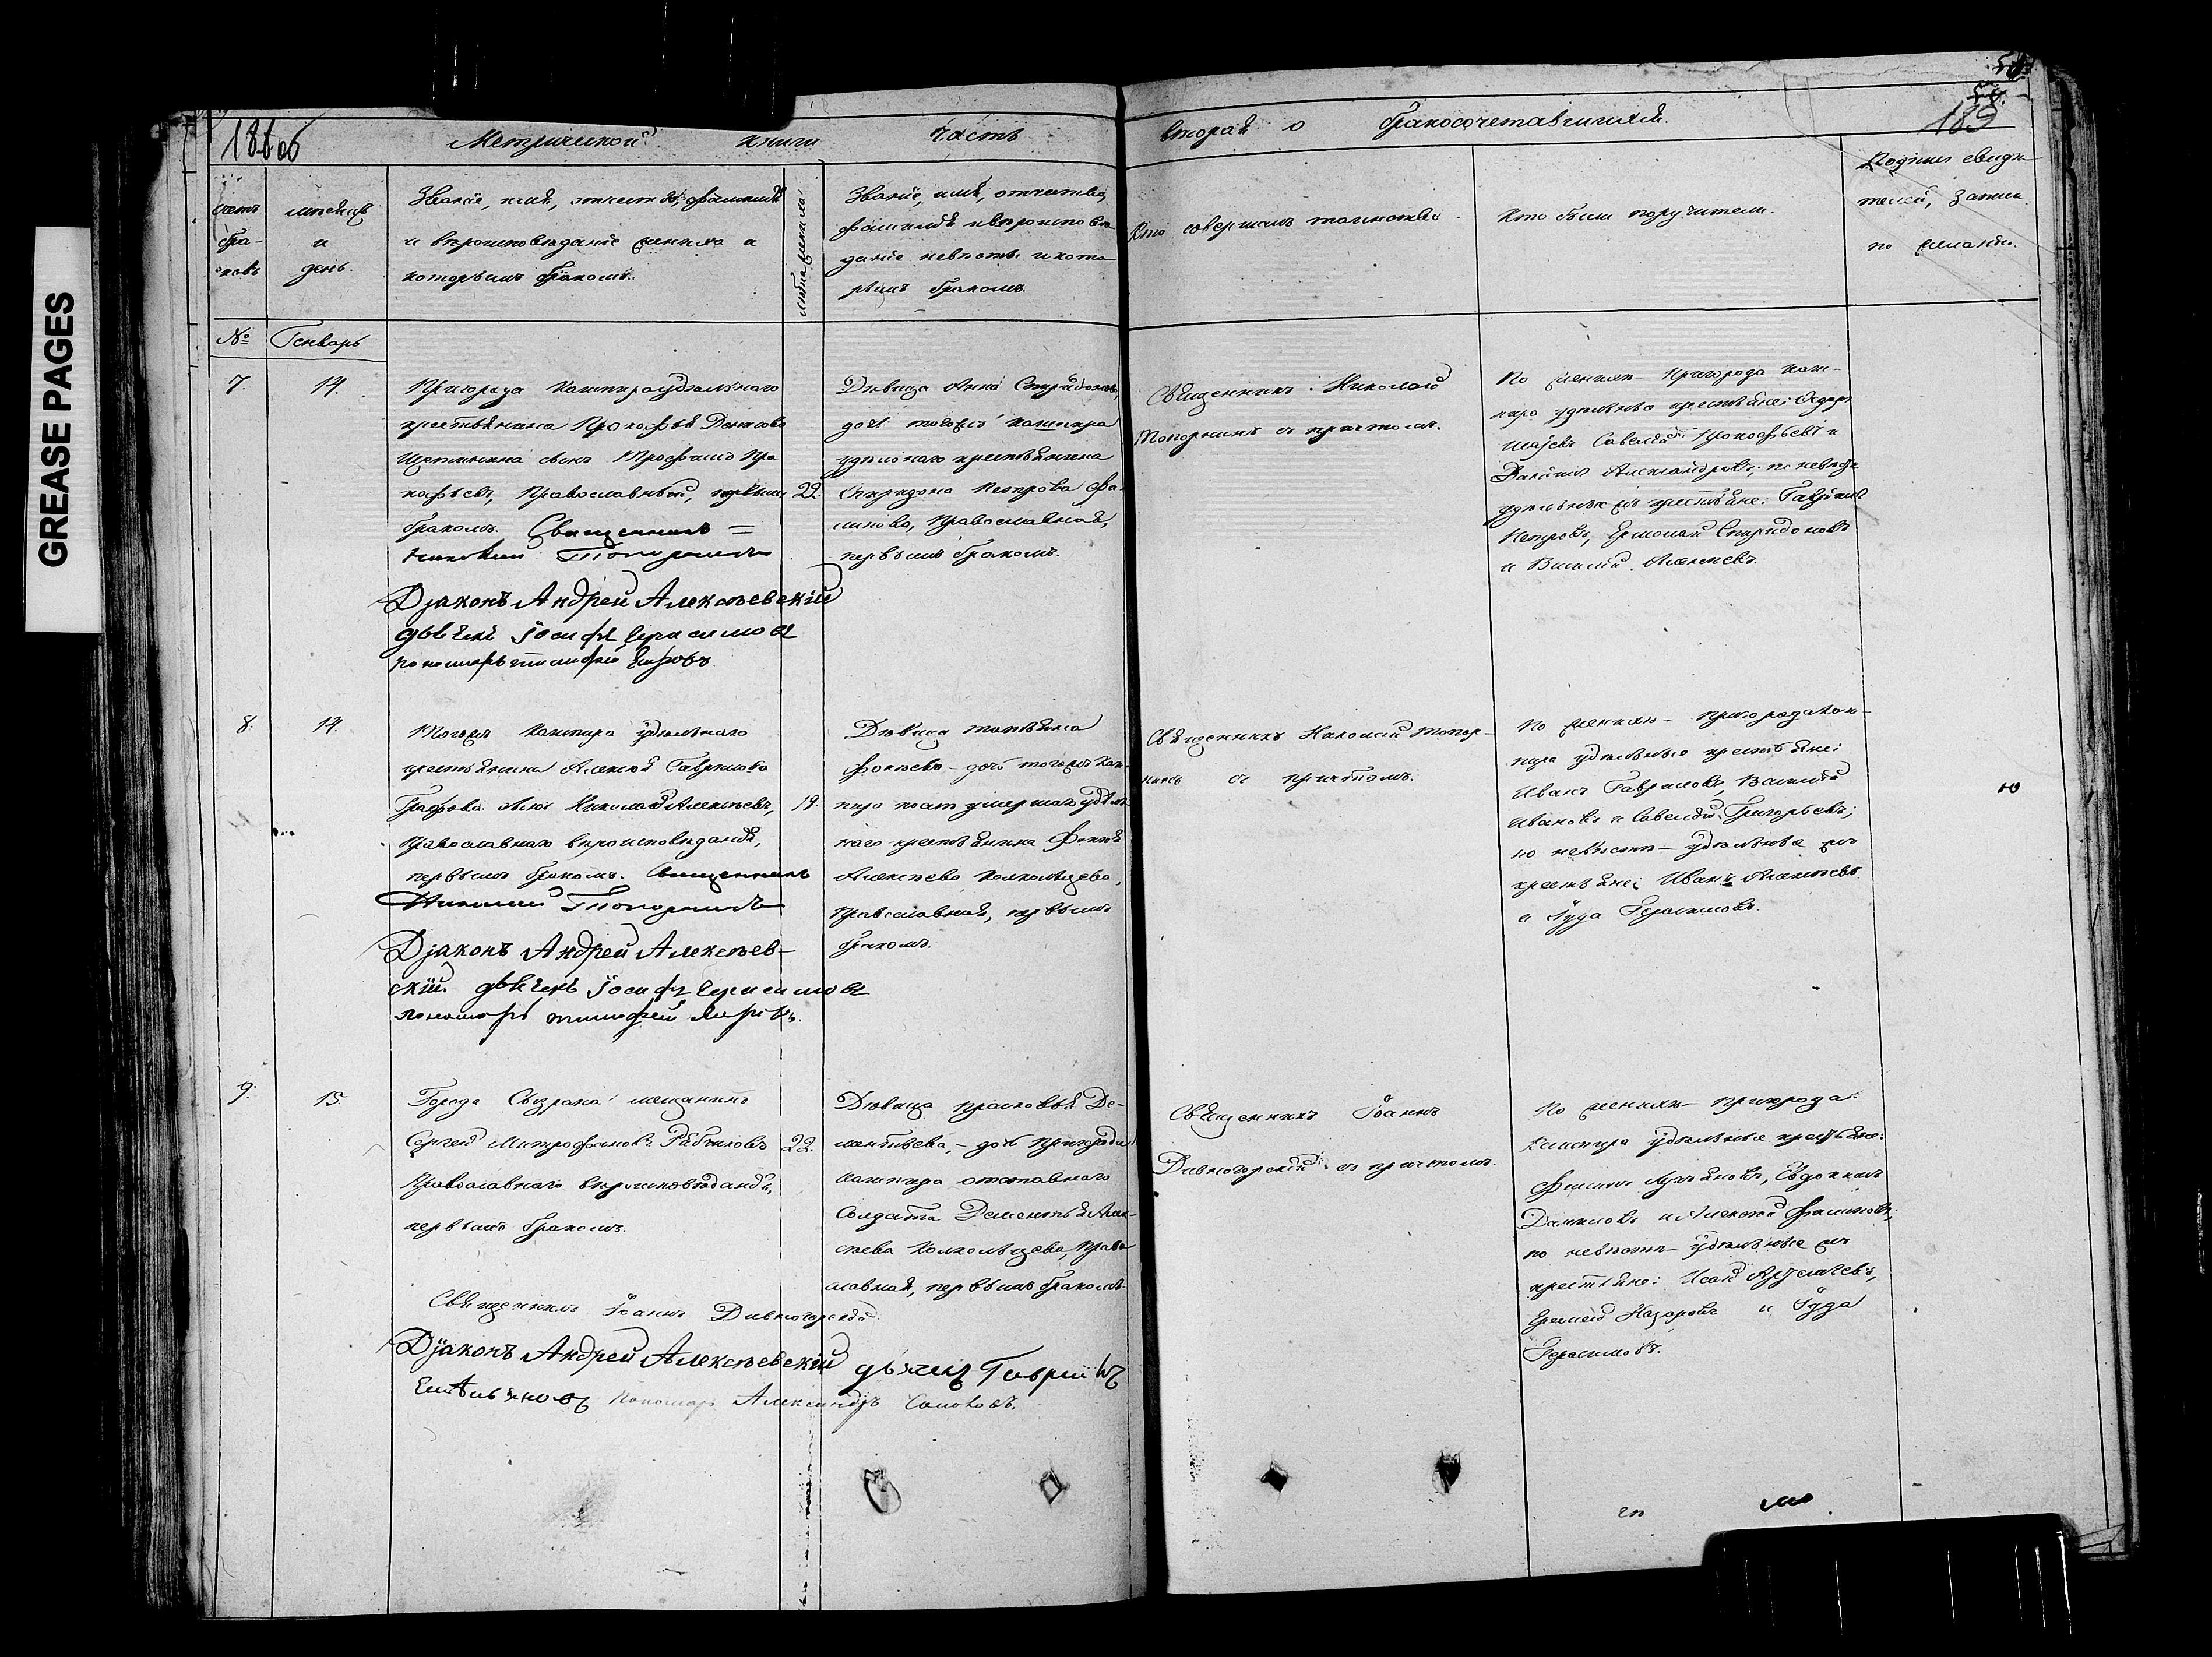 GREASE PAGES
Метрической книги часть второй о бракосочетавшихся.
189
счетъ
бра-
ковъ
мѣсяцъ
и
день.
Званіе, имя, отчество, фамилія
и вѣроисповѣданіе жениха и
которымъ бракомъ.
лѣта жениха
Званіе, имя, отчество,
фамилія и вѣроисповѣ
даніе невѣсты и кото
рымъ бракомъ.
Кто совершалъ таинство.
Кто были поручители.
Подпись свидѣ
телей, записи
по желанію.
№
Генварь
7.
14.
Пригорода Кашпира удѣльнаго
крестьянина Прокофья Денисова
Щетинкина сынъ Трофимъ Про
кофьевъ, Православный, первымъ
бракомъ. Священникъ
Николай Топорнинъ
Дjаконъ Андрей Алексѣевскій
дьячекъ Іосифъ Герасимовъ
пономарь тимофей
22.
Дѣвица Анна Спиридонова,
дочь тогожъ Кашпира
удѣльнаго крестьянина
Спиридона Петрова Фа
линова, Православная,
первымъ бракомъ.
Священникъ Николай
Топорнинъ съ причтомъ.
По женихѣ Пригорода Каш-
пира удѣльные крестьяне: Ѳедоръ
Савелій Прокофьевъ и
Данила Александровъ; по невѣстѣ
удѣльные жъ крестьяне: Гаврила
Петровъ, Ермолай Спиридоновъ
и Василій Алексѣевъ.
8.
14.
Тогожъ Кашпира удѣльнаго
крестьянина Алексѣя Гаврилова
сынъ Николай Алексѣевъ,
Православнаго вѣроисповѣданія,
первымъ бракомъ. Священникъ
Николай Топорнинъ
Дjаконъ Андрей Алексѣев-
скій дьячекъ Іосифъ Герасимовъ
пономарь тимофей
19.
Дѣвица Татьяна
Фокѣева дочь тогожъ Каш-
пира умершаго удѣль
наго крестьянина Фокѣя
Алексѣева Колкольцева,
Православная, первымъ
бракомъ.
Священникъ Николай Топор-
нинъ съ причтомъ.
По женихѣ Пригорода Каш-
пира удѣльные крестьяне:
Иванъ Гавриловъ, Василій
Ивановъ и Савелій Григорьевъ;
по невѣстѣ удѣльные жъ
крестьяне: Иванъ Алексѣевъ
и Іуда Герасимовъ.
9.
15.
Города Сызрана мещанинъ
Сергей Митрофановъ Рябчиковъ
Православнаго вѣроисповѣданія,
первымъ бракомъ.
Священникъ Іоаннъ Дивногорскій.
Дjаконъ Андрей Алексѣевскій дьячекъ Гаврiилъ
Емельяновъ Пономарь Александръ Солововъ.
22.
Дѣвица Прасковья Де-
ментьева, дочь Пригорода
Кашпира отставнаго
Солдата Дементья Алек-
сѣева Колкольцева, Право
славная, первымъ бракомъ.
Священникъ Іоаннъ
Дивногорскій съ причтомъ.
По женихѣ Пригорода
Кашпира удѣльные крестьяне:
Филиппъ Лукьяновъ, Евдокимъ
Даниловъ и Алексѣй Филиповъ;
по невѣстѣ удѣльные жъ
крестьяне: Исай
Еремей Назаровъ и Іуда
Герасимовъ.